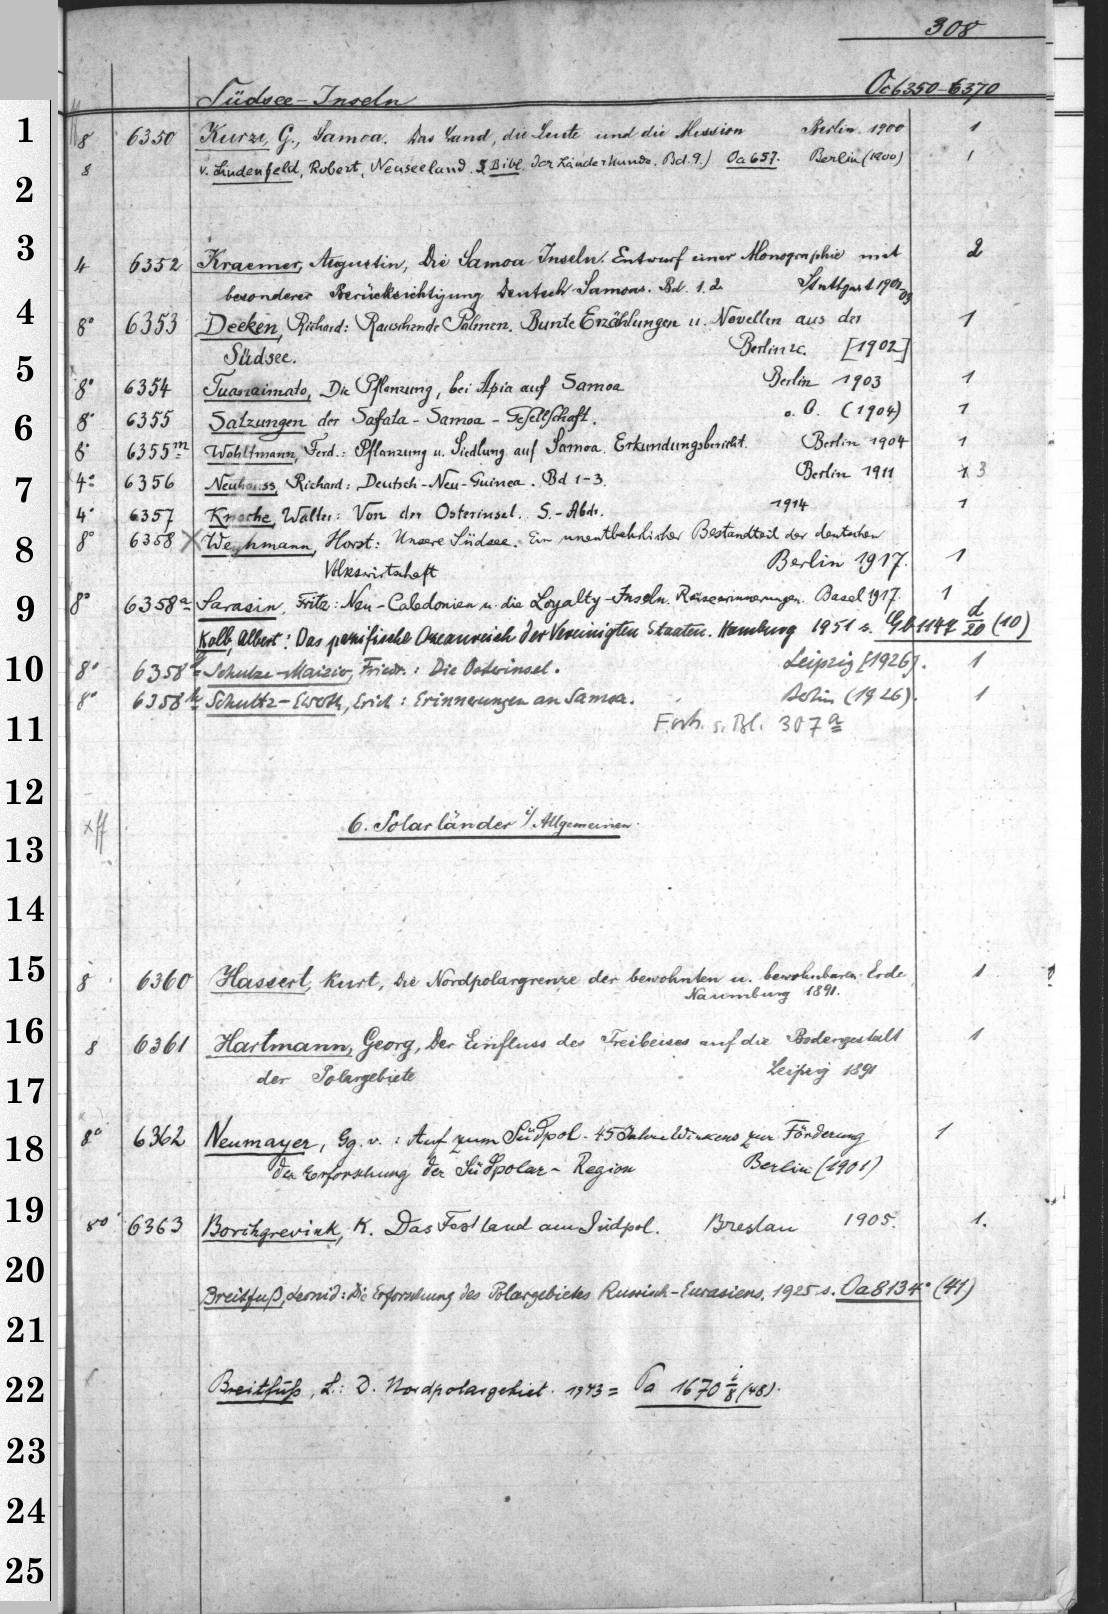 308
Südsee-Inseln Oc 6350-6370
1
8 6350 Kurze, G., Samoa. Das Land, die Leute und die Mission Berlin 1900 1
8 v. Lindenfeld, Robert, Neuseeland. Bibl. der Länderkunde. Bd. 9.) Oa 657. Berlin (1900) 1
2
3
4 6352 Kraemer, Augustin, Die Samoa Inseln. Entwurf einer Monographie mit 2
besonderer Berücksichtigung Deutsch Samoas. Bd. 1. 2 Stuttgart 1901/03
4
8° 6353 Deeken, Richard: Rauschende Palmen. Bunte Erzählungen u. Novellen aus der 1
Südsee. Berlin 2c. [1902]
5
8° 6354 Tuanaimato, Die Pflanzung, bei Apia auf Samoa Berlin 1903 1
6
8° 6355 Satzungen der Safata-Samoa-Gesellschaft. o. O. (1904) 1
8° 6355m Wohltmann, Ferd.: Pflanzung u. Siedlung auf Samoa. Erkundungsbericht. Berlin 1904 1
7
4° 6356 Neuhauss, Richard: Deutsch-Neu-Guinea. Bd 1-3. Berlin 1911 1 3
4° 6357 Knoche, Walter: Von der Osterinsel. S.-Abdr. 1914 1
8
8° 6358 Weyhmann, Horst: Unsere Südsee. Ein unentbehrlicher Bestandteil der deutschen
Volkswirtschaft Berlin 1917. 1
9
8° 6358a Sarasin, Fritz: Neu-Caledonien u. die Loyalty-Inseln. Reiseerinnerungen. Basel 1917. 1
Kolb, Albert: Das pazifische Ozeanreich der Vereinigten Staaten. Hamburg 1951 s. Gb 1147 d/20 (10)
10
8° 6358 Schulze-Maizier, Friedr.: Die Osterinsel. Leipzig [1926]. 1
8° 6358 Schultz-Ewoth, Erich: Erinnerungen an Samoa. Berlin (1926). 1
11
Forts. s. Bl. 307a
12
6. Polarländer i/Allgemeinen
13
14
15
8 6360 Hassert, Kurt, Die Nordpolargrenze der bewohnten u. bewohnbaren Erde 1
Naumburg 1891.
16
8 6361 Hartmann, Georg, Der Einfluss des Treibeises auf die Bodengestalt 1
der Polargebiete Leipzig 1891
17
18
8° 6362 Neumayer, Gg. v.: Auf zum Südpol. 45 Jahre Wirkens zur Förderung 1
der Erforschung der Südpolar-Region Berlin (1901)
19
8° 6363 Borchgrevink, K. Das Festland am Südpol. Breslau 1905. 1.
20
Breitfuß, Leonid: Die Erforschung des Polargebietes Russisch-Eurasiens. 1925 s. Oa 8134° (41)
21
22
Breitfuß, L.: D. Nordpolargebiet. 1943 = Pa 1670 i/8 (48).
23
24
25